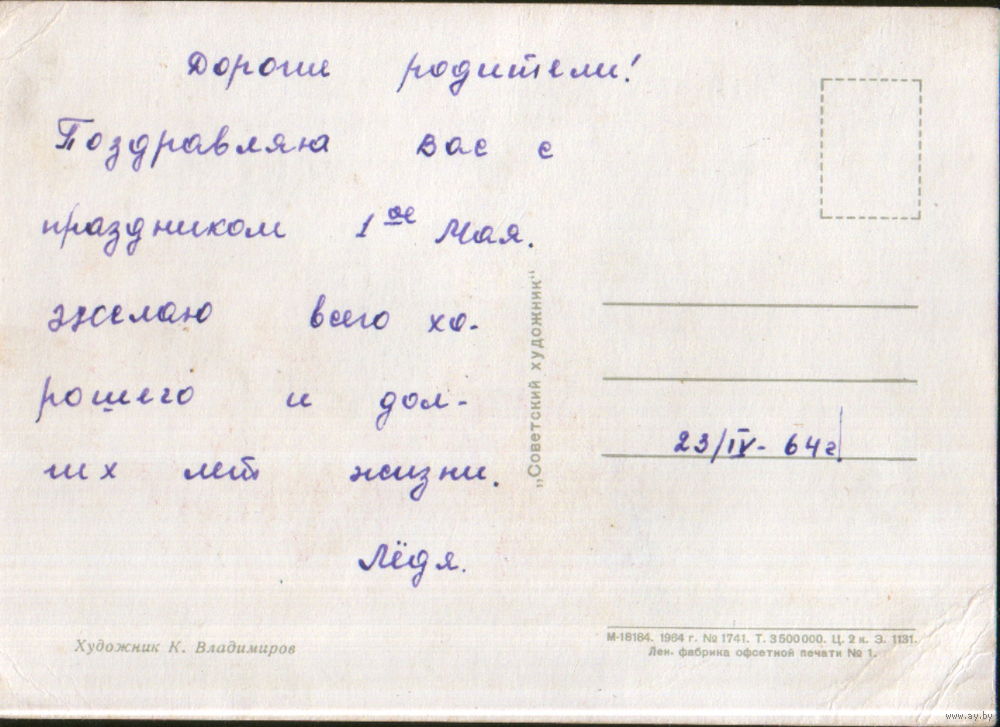 Дорогие родители!
Поздравляю вас с
праздником 1ое Мая.
желаю всего хо-
рошего и дол-
гих лет жизни.
Лёдя.
„Советский художник“
23/IV- 64г.
Художник К. Владимиров
М-18184. 1964 г. № 1741. Т. 3500000. Ц. 2 к. З. 1131.
Лен. фабрика офсетной печати № 1.
www.ay.by